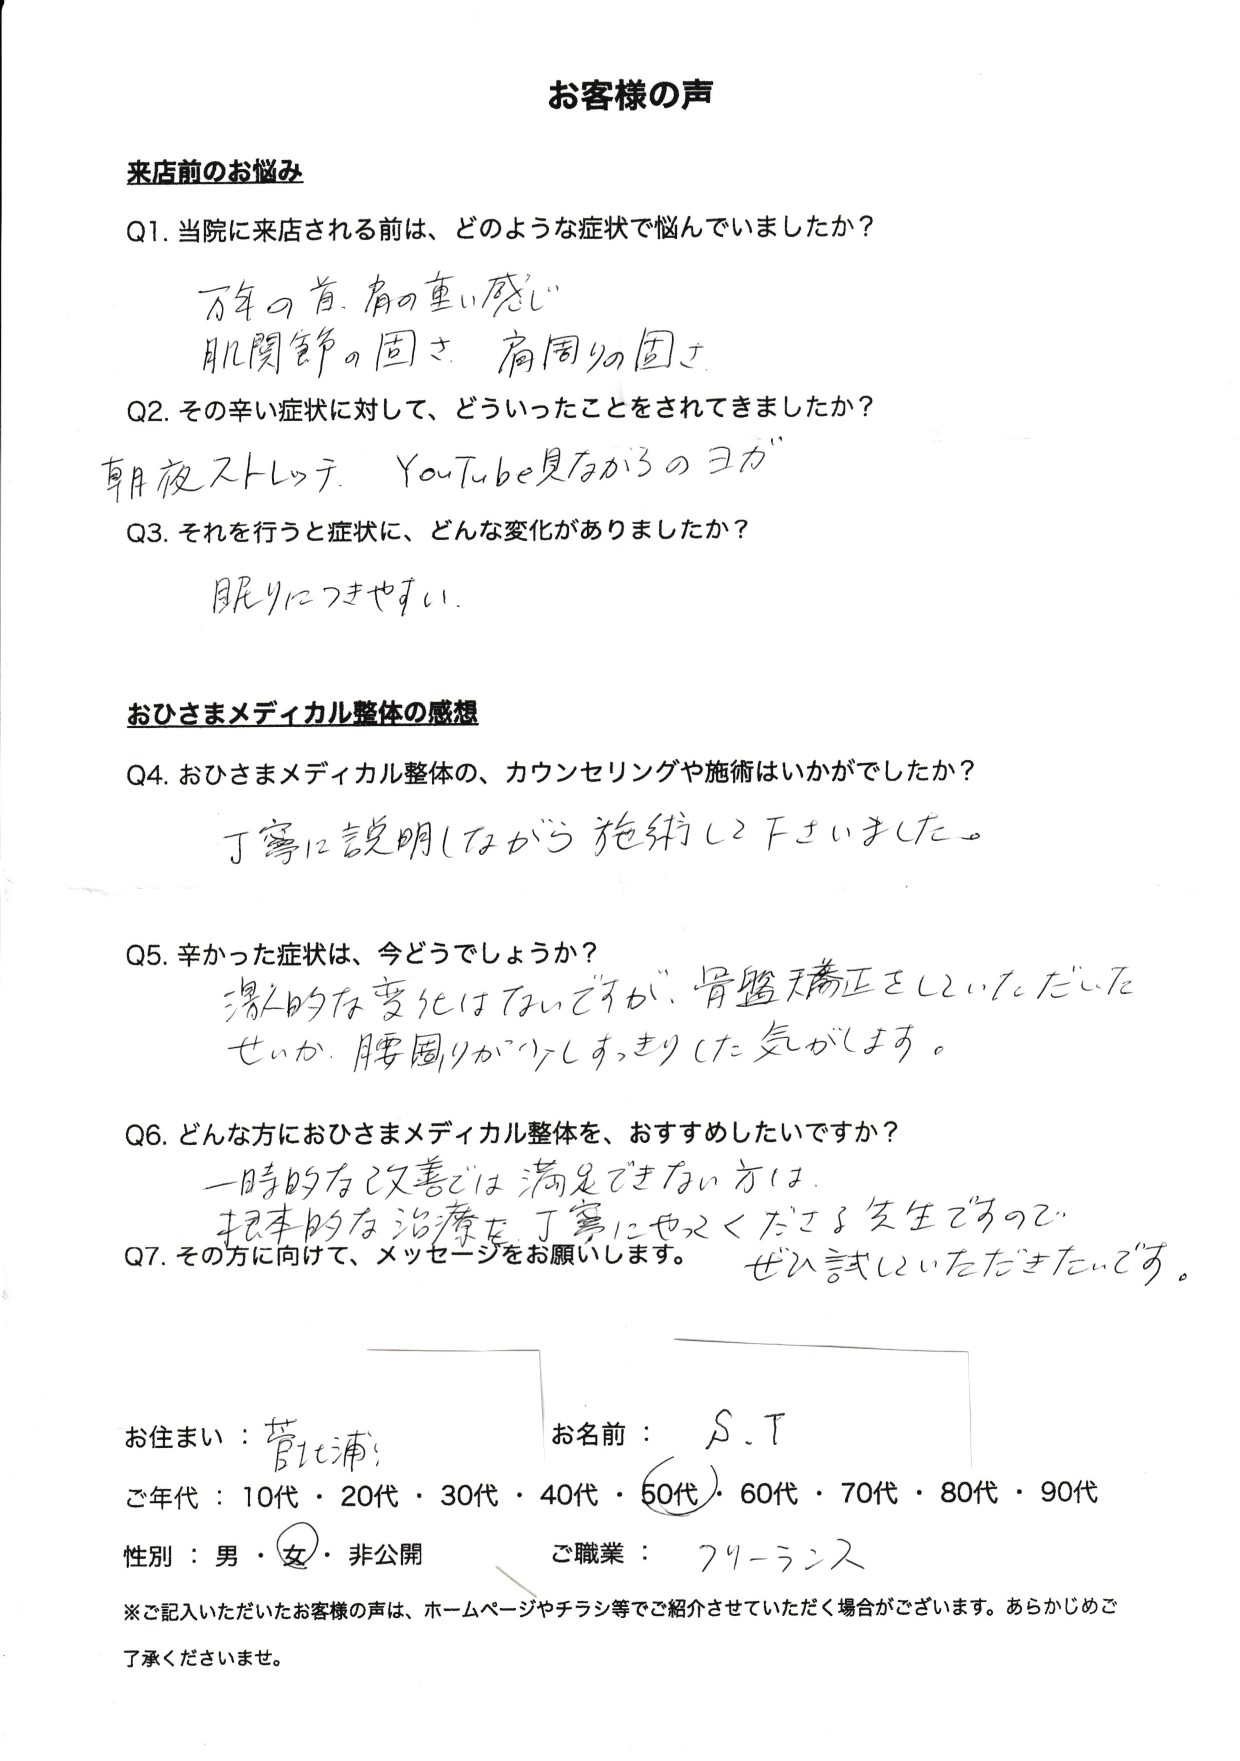 お客様の声
来店前のお悩み
Q1. 当院に来店される前は、どのような症状で悩んでいましたか？
万年の首、肩の重い感じ
肌関節の固さ 肩周りの固さ
Q2. その辛い症状に対して、どういったことをされてきましたか？
朝夜ストレッチ、 YouTube見ながらのヨガ
Q3. それを行うと症状に、どんな変化がありましたか？
眠りにつきやすい.
おひさまメディカル整体の感想
Q4. おひさまメディカル整体の、カウンセリングや施術はいかがでしたか？
丁寧に説明しながら施術して下さいました。
Q5. 辛かった症状は、今どうでしょうか？
激的な変化はないですが、骨盤矯正をしていただいた
せいか、腰周りが少しすっきりした気がします。
Q6. どんな方におひさまメディカル整体を、おすすめしたいですか？
一時的な改善では満足できない方は、
根本的な治療を、丁寧にやってくださる先生ですので
Q7. その方に向けて、メッセージをお願いします。 ぜひ試していただきたいです。
お住まい ： お名前 ： S.T
ご年代 ： 10代 ・ 20代 ・ 30代 ・ 40代 ・ 50代 ・ 60代 ・ 70代 ・ 80代 ・ 90代
性別 ： 男 ・ 女 ・ 非公開 ご職業 ： フリーランス
※ご記入いただいたお客様の声は、ホームページやチラシ等でご紹介させていただく場合がございます。あらかじめご
了承くださいませ。